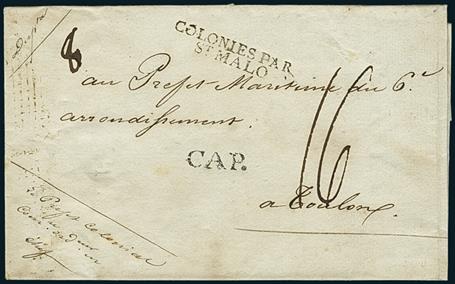 8
COLONIES PAR
St MALO
au Prefet Maritime du 6.e
arrondissement.
CAP.
16
a Toulon.
Le Prefet Colonial